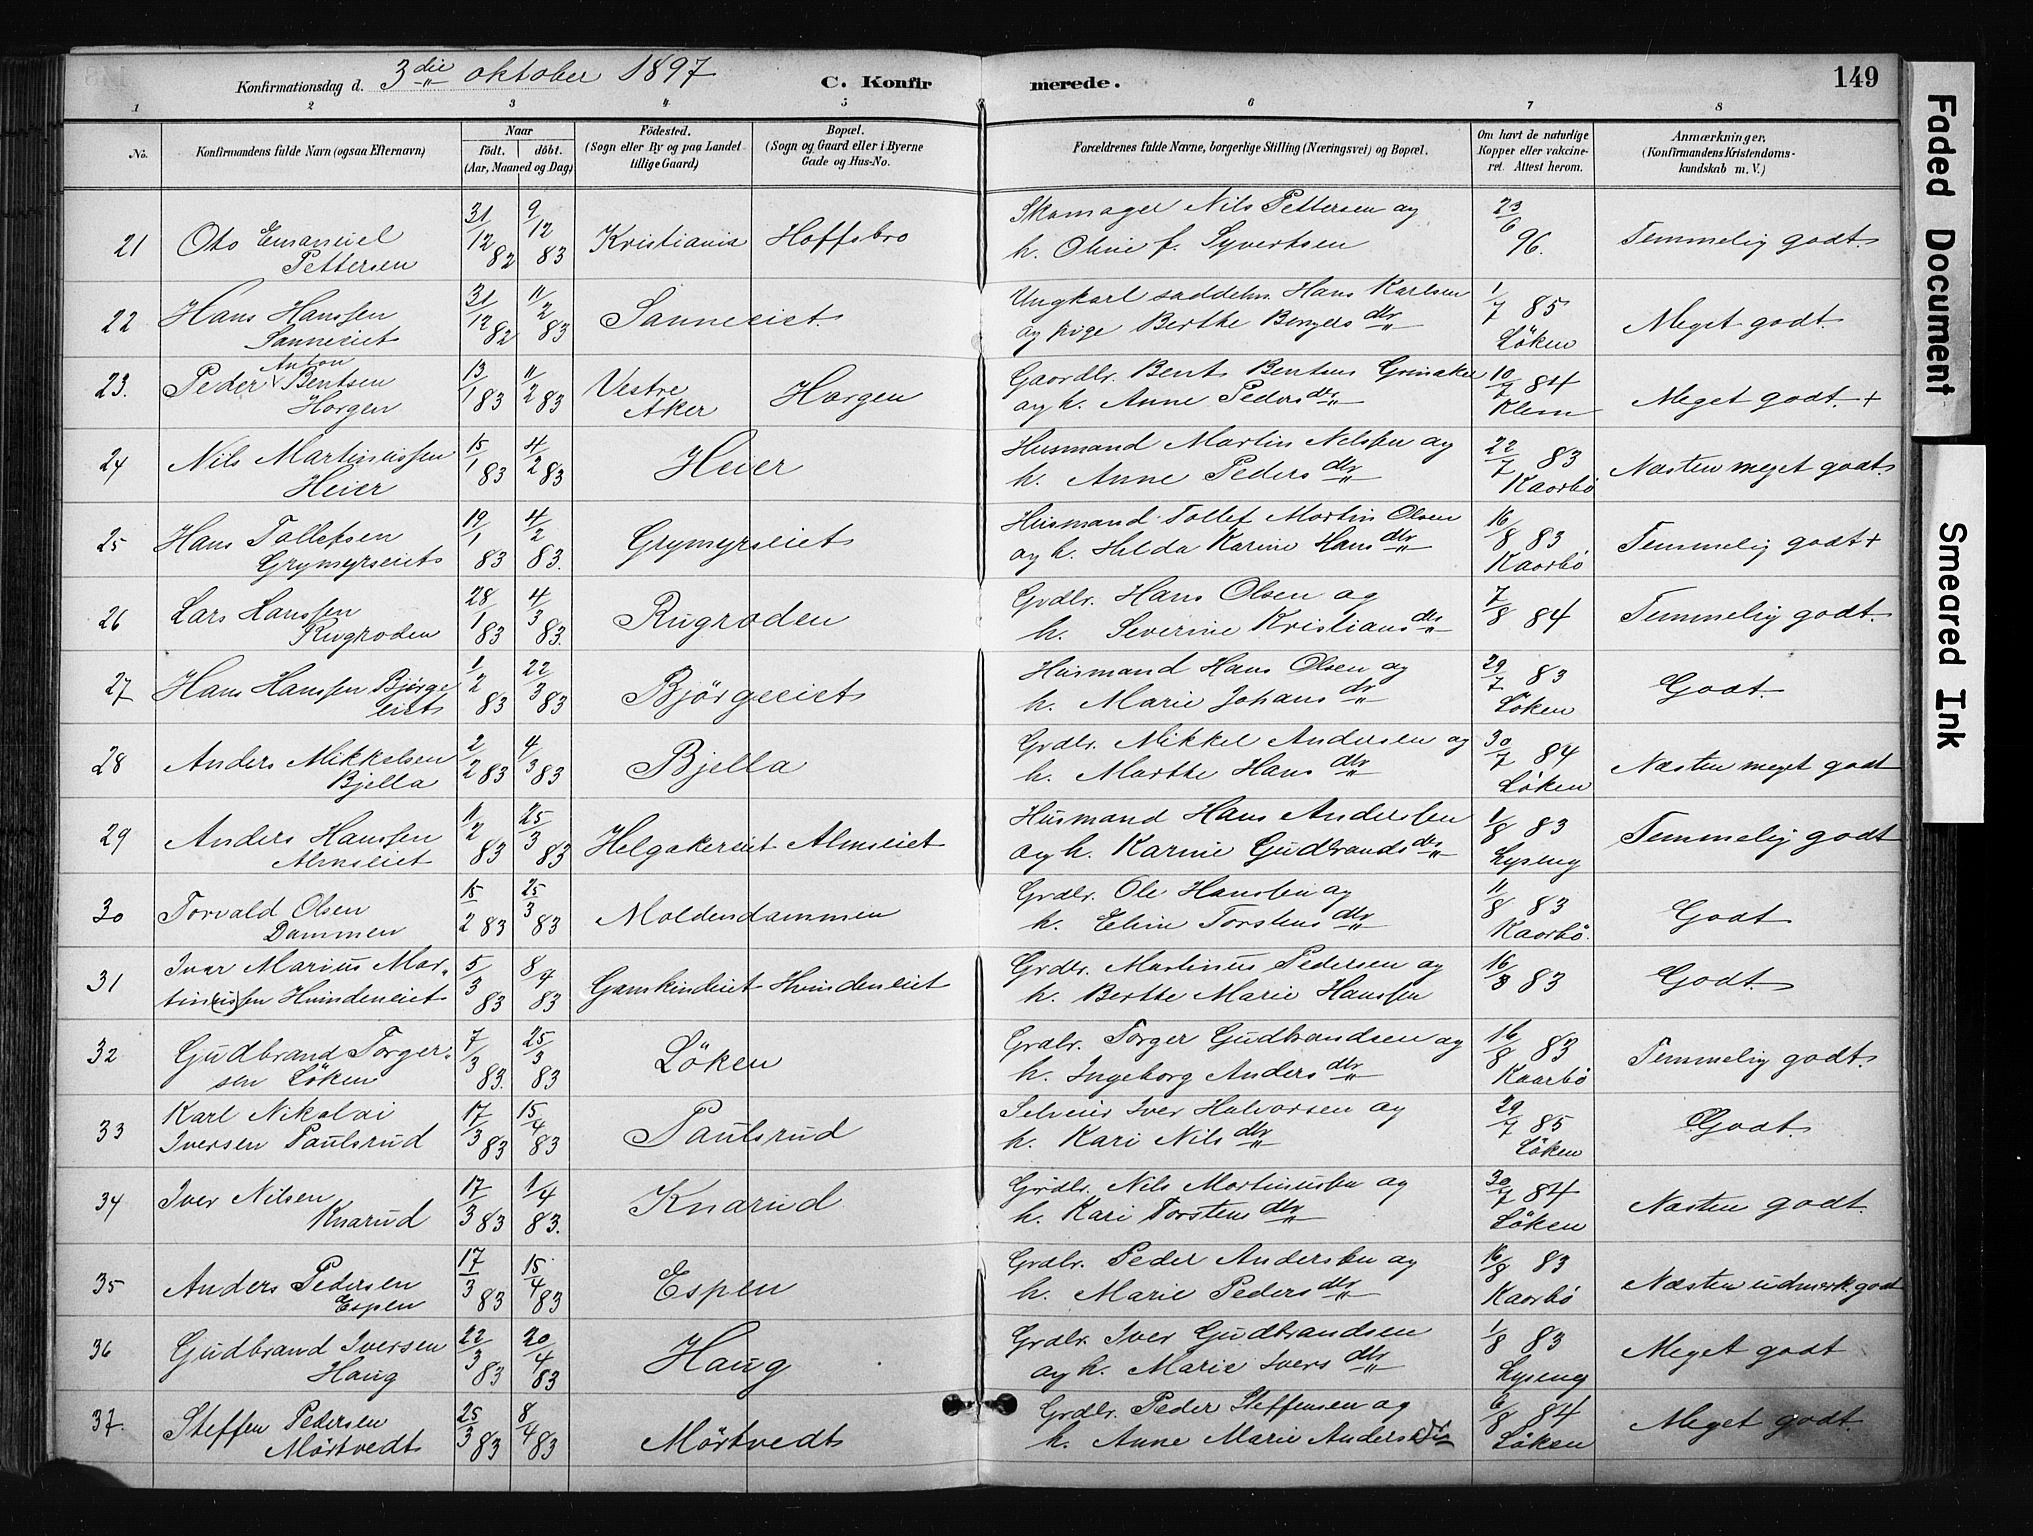 Konfirmationsdag d. 3die oktober 1897 C. Konfirmerede. 149
1 2 3 4 5 6 7 8
No. Konfirmandens fulde Navn (ogsaa Efternavn) Naar født. døbt. (Aar, Maaned og Dag) Fødested. (Sogn eller By og paa Landet tillige Gaard) Bopæl. (Sogn og Gaard eller i Byerne Gade og Hus-No. Forældrenes fulde Navne, borgerlige Stilling (Næringsvei) og Bopæl. Om havt de naturlige Kopper eller vakcineret. Attest herom. Anmærkninger, (Konfirmandens Kristendomskundskab m. V.)
21 Oto Emanuel Pettersen 31/12 82 9/12 83 Kristiania Hoffsbro Skomager Nils Pettersen og h. Oline f. Syvertsen 23/6 96. Temmelig godt.
22 Hans Hanssen Sanneeiet 31/12 82 11/2 83 Sanneeiet. Ungkarl saddelm. Hans Karlsen og pige Berthe Bergersdtr 1/7 85 Løken Meget godt.
23. Peder Anton Bentsen Horgen 13/1 83 11/2 83 Vestre Aker Horgen Gaardbr. Bent Bentsen Grinaker og h. Anne Pedersdtr 10/7 84 Klem Meget godt. +
24 Nils Martinussen Heier 15/1 83 4/2 83 Heier Husmand Martin Nelssen og h. Anne Pedersdtr 22/7 83 Kaarbø Næsten meget godt.
25 Hans Tollefsen Grymyrseiet 19/1 83 4/2 83. Grymyrseiet Husmand Tollef Martin Olsen og h. Helda Karine Hansdtr 16/8 83 Kaarbø Temmelig godt +
26 Lars Hanssen Rugroden 28/1 83 4/3 83. Rugroden Grdbr. Hans Olsen og h. Severine Kristiansdtr 7/8 84 Temmelig godt.
27 Hans Hanssen Bjørgeeiet 1/2 83 22/3 83 Bjørgeeiet Husmand Hans Olsen og h. Marie Johansdtr 29/7 83 Løken Godt.
28 Anders Mikkelsen Bjella 2/2 83 4/3 83 Bjella Grdbr. Mikkel Andersen og h. Marthe Hansdtr 30/7 84 Løken Næsten meget godt
29 Anders Hanssen Almseiet 11/2 83 25/3 83 Helgakereiet Almseiet Husmand Hans Anderssen og h. Karine Gudbrandsdtr 1/8 83 Lyseng Temmelig godt
30 Torvald Olsen Dammen 15/2 83 25/3 83 Moldendammen Grdbr. Ole Hanssen og h. Eline Torstensdtr 11/8 83 Kaarbø. Godt
31 Iver Marius Martinussen Hvindeneiet 5/3 83 8/4 83 Gamkindeiet Hvindeneiet Grdbr. Martinus Pedersen og h. Berthe Marie Hanssen 16/8 83 Godt.
32 Gudbrand Torgersen Løken 7/3 83. 25/3 83 Løken Grdbr. Torger Gudbrandsen og h. Ingeborg Andersdtr 16/8 83 Kaarbø Temmelig godt.
33 Karl Nikolai Iversen Paulsrud 17/3 83 15/4 83 Paulsrud Selveier Iver Halvorsen og h. Kari Nilsdtr 29/7 85 Løken Godt.
34 Iver Nilsen Knarud 17/3 83 1/4 83. Knarud Grdbr. Nils Martinussen og h. Kari Torstensdtr 30/7 84 Løken Næsten godt.
35 Anders Pedersen Espen 17/3 83 15/4 83 Espen Grdbr. Peder Anderssen og h. Marie Pedersdtr 16/8 83 Kaarbø Næsten udmerk. godt
36 Gudbrand Iversen Haug 22/3 83 20/4 83 Haug Grdbr. Iver Gudbrandsen og h. Marie Iversdtr 1/8 83 Lyseng Meget godt
37. Steffen Pedersen Mørtvedt 25/3 83 8/4 83 Mørtvedt Grdbr. Peder Steffensen og h. Anne Marie Andersdtr 6/8 84 Løken Meget godt.
Faded Document
Smeared Ink